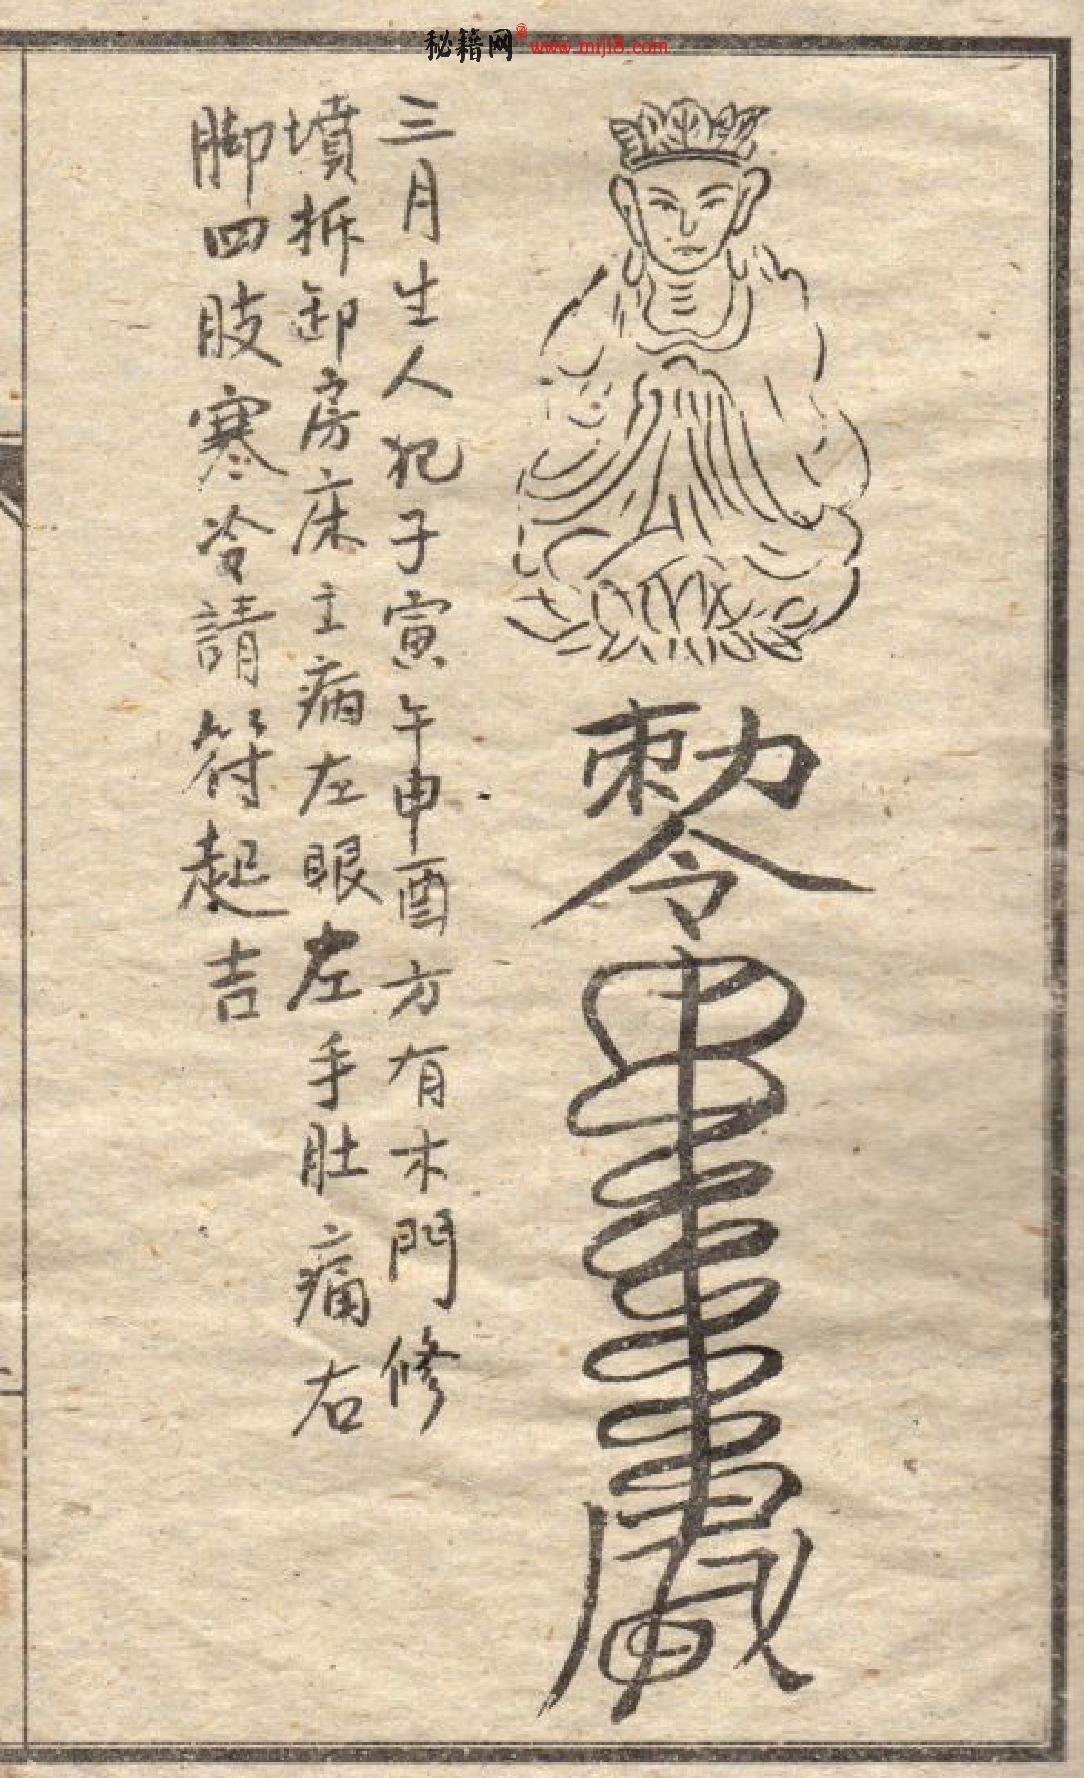 秘籍网 www.miji8.com
勅令
三月生人犯子寅午申酉方有木門修
墳拆卸房床主病左眼左手肚痛右
脚四肢寒冷請符起吉